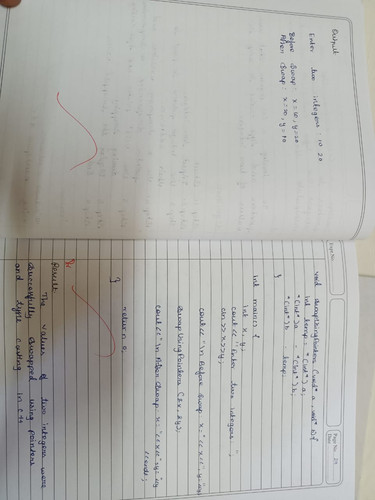 Output
Enter two integers : 10 20
Before Swap : x=10, y=20
After Swap : x=20, y=10
Page No.
Date
void swapUsingPointers (void* a, void* b) {
int temp = *(int*) a;
*(int*) a = *(int*) b;
*(int*) b = temp;
}
int main() {
int x, y;
cout << "Enter two integers : ";
cin >> x >> y;
cout << "\n Before Swap x=" << x <<
swapUsingPointers (&x, &y);
cout << "\n After Swap x=" << x <<
<< endl;
return 0;
}
Result
The values of two integers were
successfully swapped using pointers
and type casting in C++